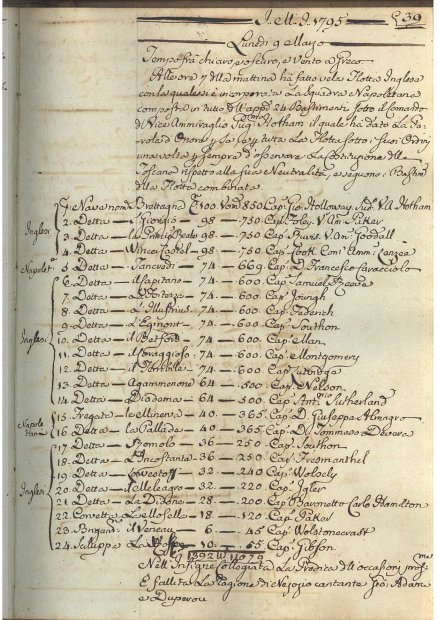 A. M. D. 1795
539
Lunedi 9 Maggio
Tempo fra chiaro, e oscuro, e Vento a Greco
Alle ore 7 della mattina ha fatto vela la Flotta Inglese
con la quale si è incorporata La Squadra Napoletana
composta in tutto dell' app. 24 Bastimenti sotto il Comando
di Vice Ammiraglio Hotham il quale ha dato La Pa
rola d'Onore La Flotta sotto i suoi Ordini
una volta e sempre d'osservare La Costituzione della
Toscana rispetto alla sua Neutralità, e seguono i Bastim
della Flotta combinata
Inglesi
1. Nave nom. Brettagna 100 850 Cap. Gio. Holloway V. A. Hotham
2. Detta — S. Giorgio — 98 — 750 Cap. Foley V. Am. Parker
3. Detta — La Princip Reale 98 — 750 Cap. V. Am. Goodall
4. Detta — Wince Castel — 98 — 750 Cap. Am. Linzea
Napolet
5. Detta — Sancredi — 74 — 669 Cap. D. Francesco Caracciolo
Inglesi
6. Detta — il Capitano — 74 — 600 Cap. Samuel Reeve
7. Detta — La Fortezza — 74 — 600 Cap. Joungh
8. Detta — L'Illustrius — 74 — 600 Cap. Federich
9. Detta — L'Egmont — 74 — 600 Cap. Southon
10. Detta — il Betford — 74 — 600 Cap. Man
11. Detta — il Coraggioso — 74 — 600 Cap. Montgomery
12. Detta — il Terribile — 74 — 600 Cap.
13. Detta — Agamennone 64 — 500 Cap. Nelson
14. Detta — Diadema — 64 — 500 Cap. Sutherland
Napole
tane
15. Fregata La Minerva — 40 — 365 Cap. D. Giuseppe Almagro
16. Detta — La Pallade — 40 — 365 Cap. D. Tommaso
Inglesi
17. Detta — Romolo — 36 — 250 Cap. Southon
18. Detta — L'Incostante — 36 — 250 Cap. Freemanthel
19. Detta — Lowestoff — 32 — 240 Cap. Wolsely
20. Detta — il Meleagro — 32 — 220 Cap.
21. Detta — La Didone — 28 — 200 Cap. Baronetto Carlo Hamilton
22. Corvetta — La Moselle — 18 — 120 Cap. Paker
23. Brigan. — 6 — 45 Cap. Wolstonecraft
24. Sciluppa — 10 — 55 Cap. Gibson
1392 11079
Nell' Insigne Collegiata La Predica delle occasioni pross.me
È fallita La Ragione di Negozio cantante Gio. Adam
e Duperou